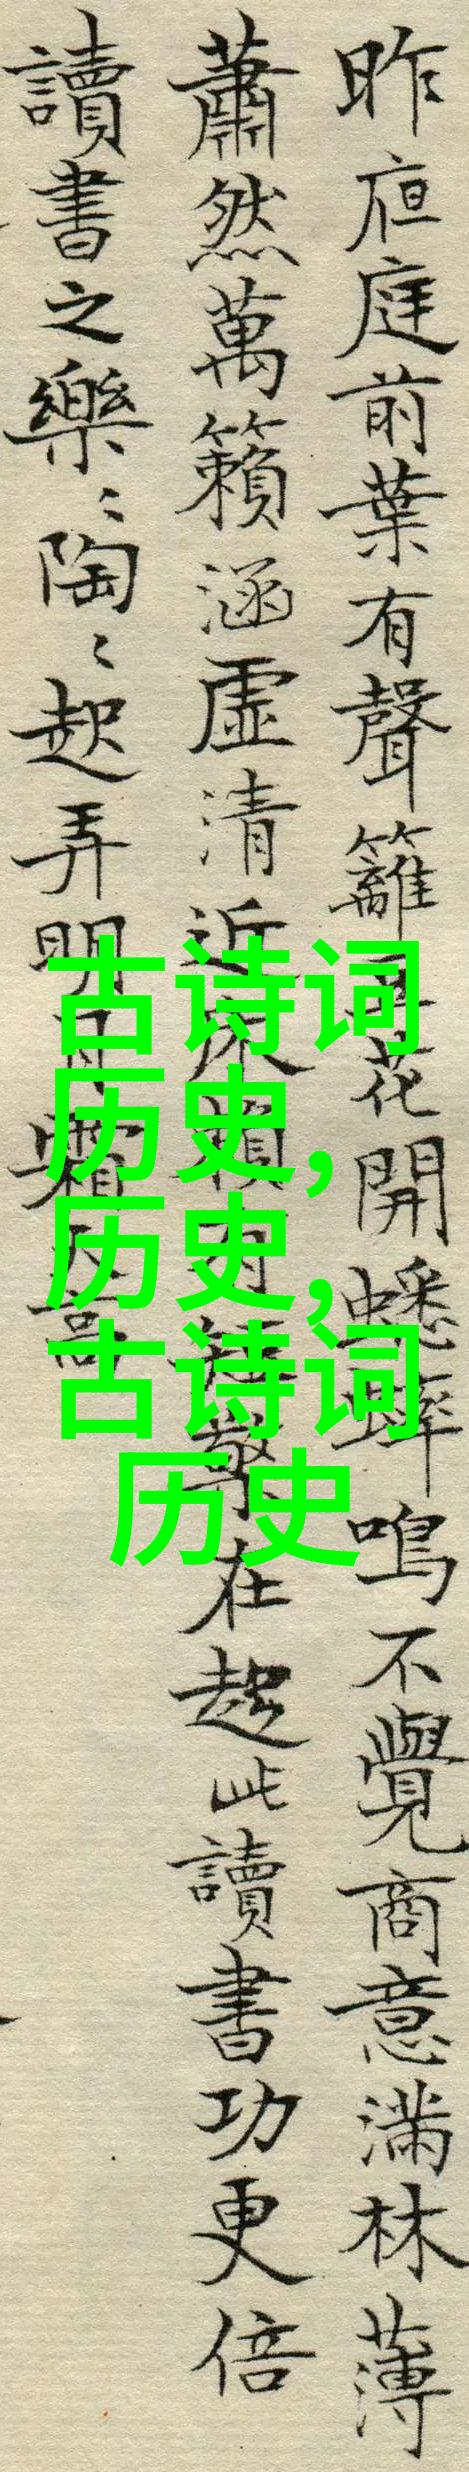 昨亱庭前葉有聲籬豆花開蟋蟀鳴不覺商意滿林薄
蕭然萬籟涵虛清近床賴有短檠在趂此讀書功更倍
讀書之樂〻陶〻起弄明月霜天高
古诗词
历史,
历史,
古诗词
历史